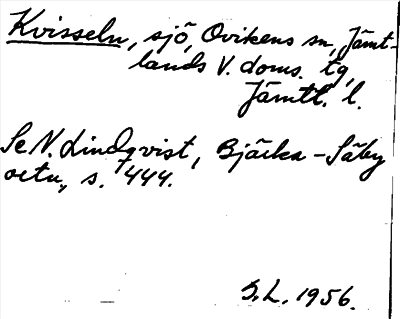 Kvisseln, sjö, Ovikens sn, Jämt-
lands V. doms. tg,
Jämtl. l.
Se N. Lindqvist, Bjärka-Säby
ortn., s. 444.
S.L. 1956.